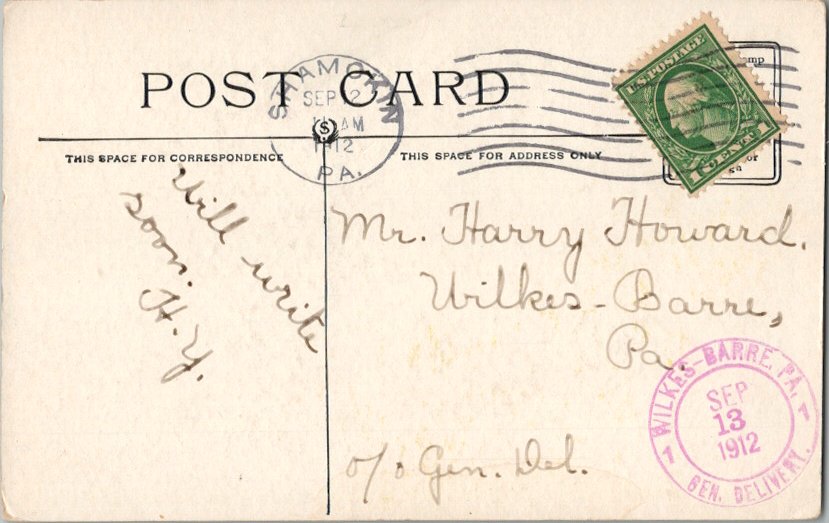 POST CARD
SHAMOKIN
SEP 12
AM
1912
PA.
U.S. POSTAGE
1 CENT 1
THIS SPACE FOR CORRESPONDENCE
THIS SPACE FOR ADDRESS ONLY
Will write
soon.
H.Y.
Mr. Harry Howard.
Wilkes-Barre,
Pa.
c/o Gen. Del.
WILKES-BARRE, PA.
SEP
13
1912
1 GEN. DELIVERY. 1